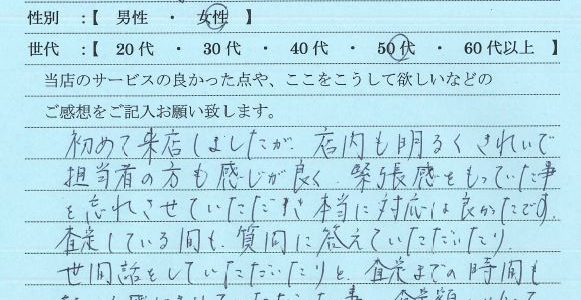 性別 :【 男性 ・ 女性 】
世代 :【 20代 ・ 30代 ・ 40代 ・ 50代 ・ 60代以上 】
当店のサービスの良かった点や、ここをこうして欲しいなどの
ご感想をご記入お願い致します。
初めて来店しましたが、店内も明るくきれいで
担当者の方も感じが良く 緊張感をもっていた事
を忘れさせていただき本当に対応は良かったです。
査定している間も、質問に答えていただいたり、
世間話をしていただいたりと、査定までの時間も